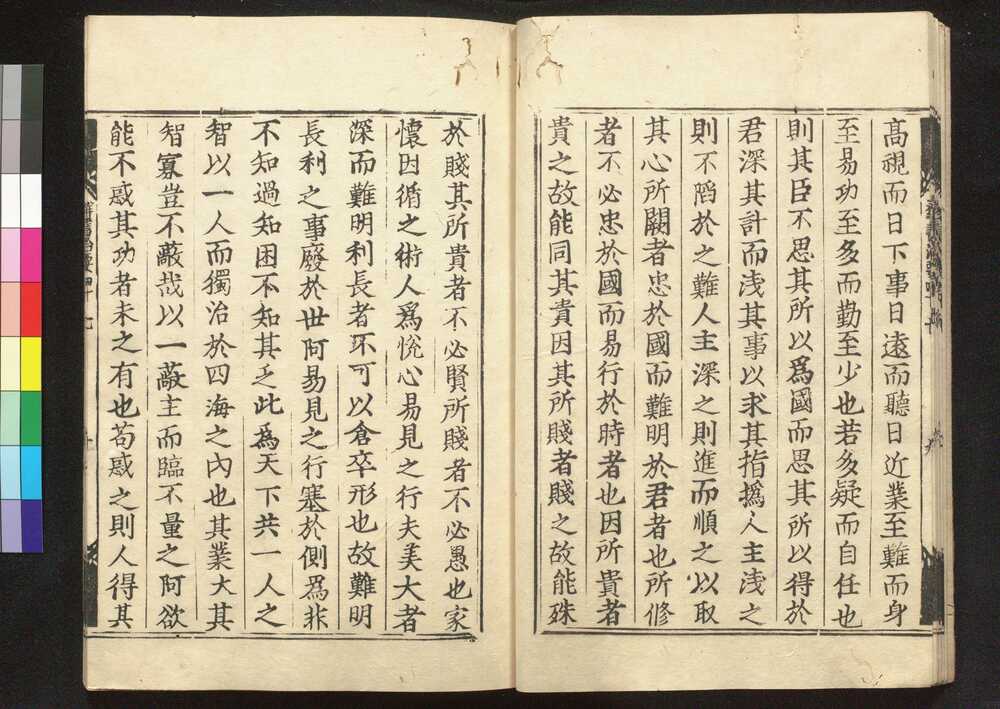 高視而日下事日遠而聽日近業至難而身
至易功至多而勤至少也若多疑而自任也
則其臣不思其所以爲國而思其所以得於
君深其計而浅其事以求其指撝人主浅之
則不陷於之難人主深之則進而順之以取
其心所闕者忠於國而難明於君者也所修
者不必忠於國而易行於時者也因所貴者
貴之故能同其貴因其所賤者賤之故能殊
於賤其所貴者不必賢所賤者不必愚也家
懷因循之術人爲悅心易見之行夫美大者
深而難明利長者不可以倉卒形也故難明
長利之事廢於世阿易見之行塞於側爲非
不知過知困不知其乏此爲天下共一人之
智以一人而獨治於四海之內也其業大其
智寡豈不蔽哉以一蔽主而臨不量之阿欲
能不惑其功者未之有也苟惑之則人得其